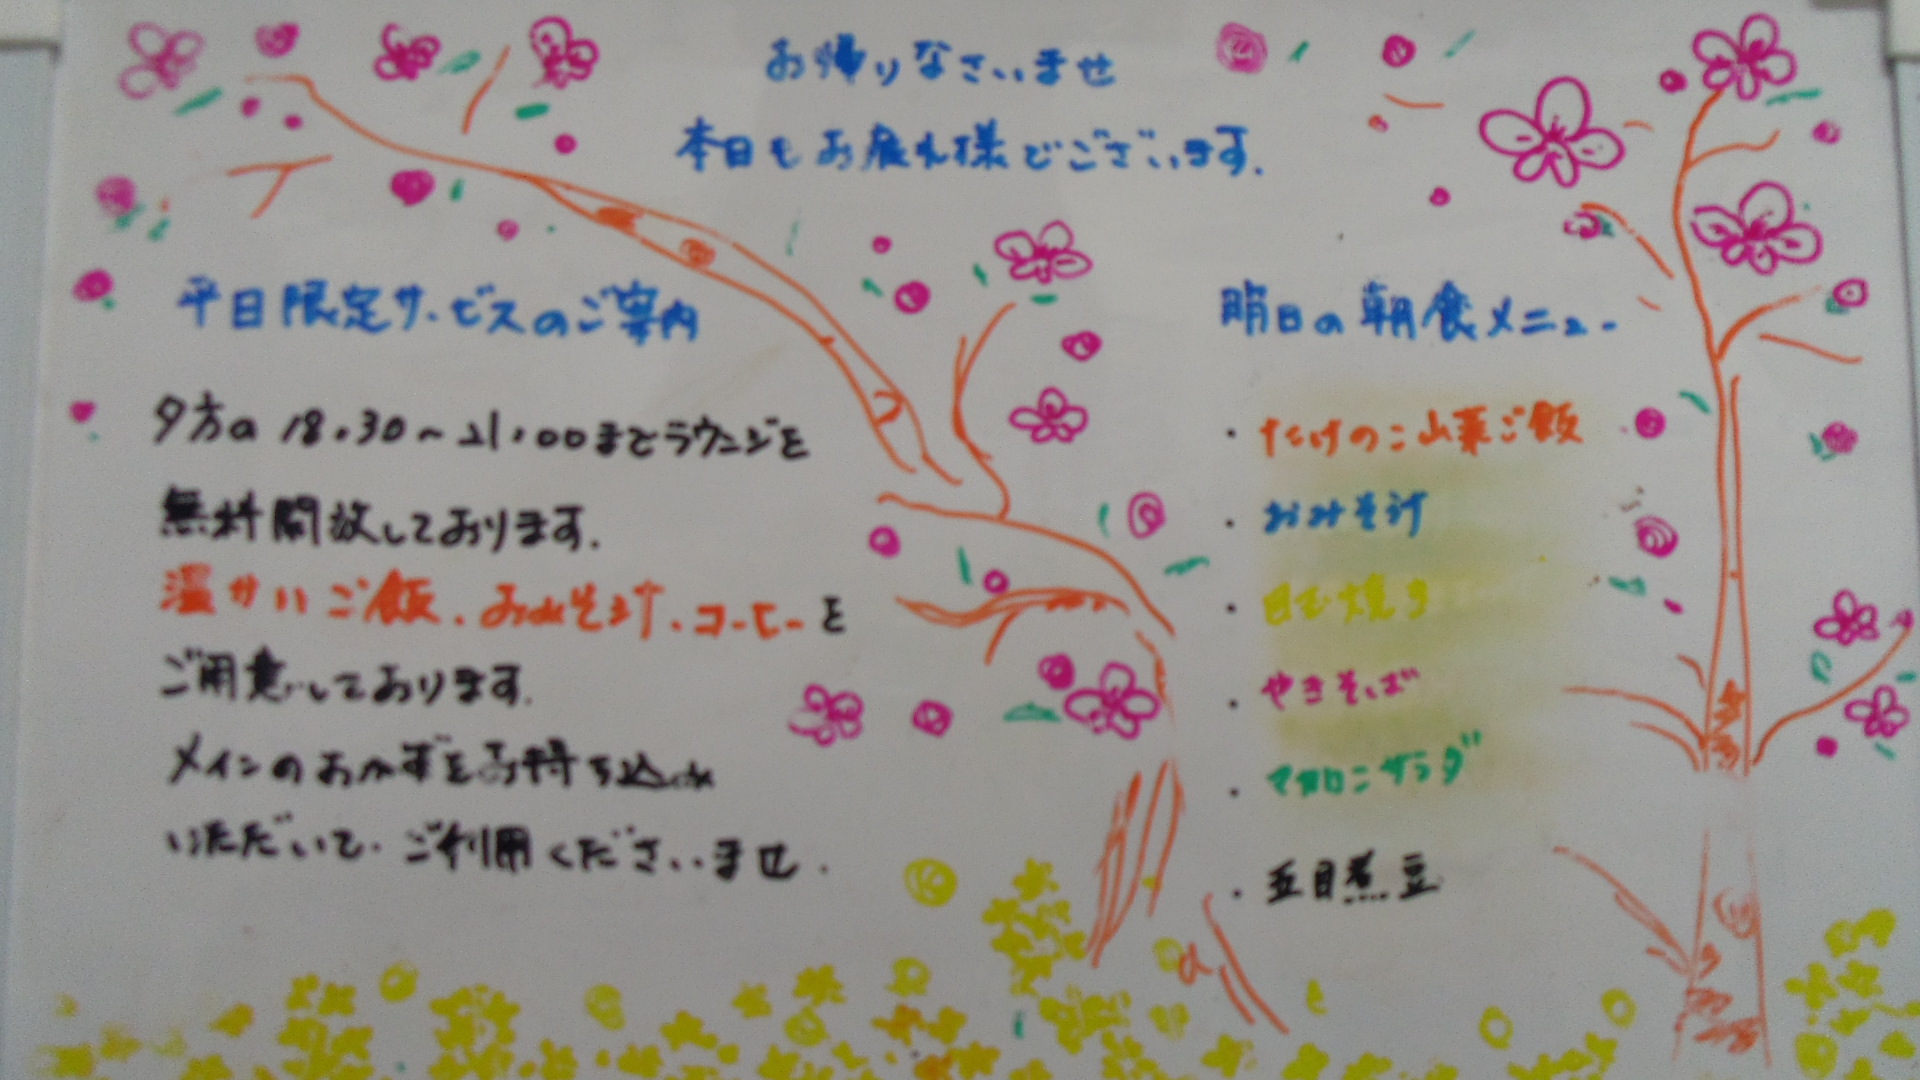 お帰りなさいませ
本日もお疲れ様でございます.
平日限定サービスのご案内
夕方の18.30～21.00までラウンジを
無料開放しております.
温かいご飯.おみそ汁.コーヒーを
ご用意しております.
メインのおかずをお持ち込み
いただいて.ご利用くださいませ.
明日の朝食メニュー
・たけのこ山菜ご飯
・おみそ汁
・玉子焼き
・やきそば
・マカロニサラダ
・五目煮豆